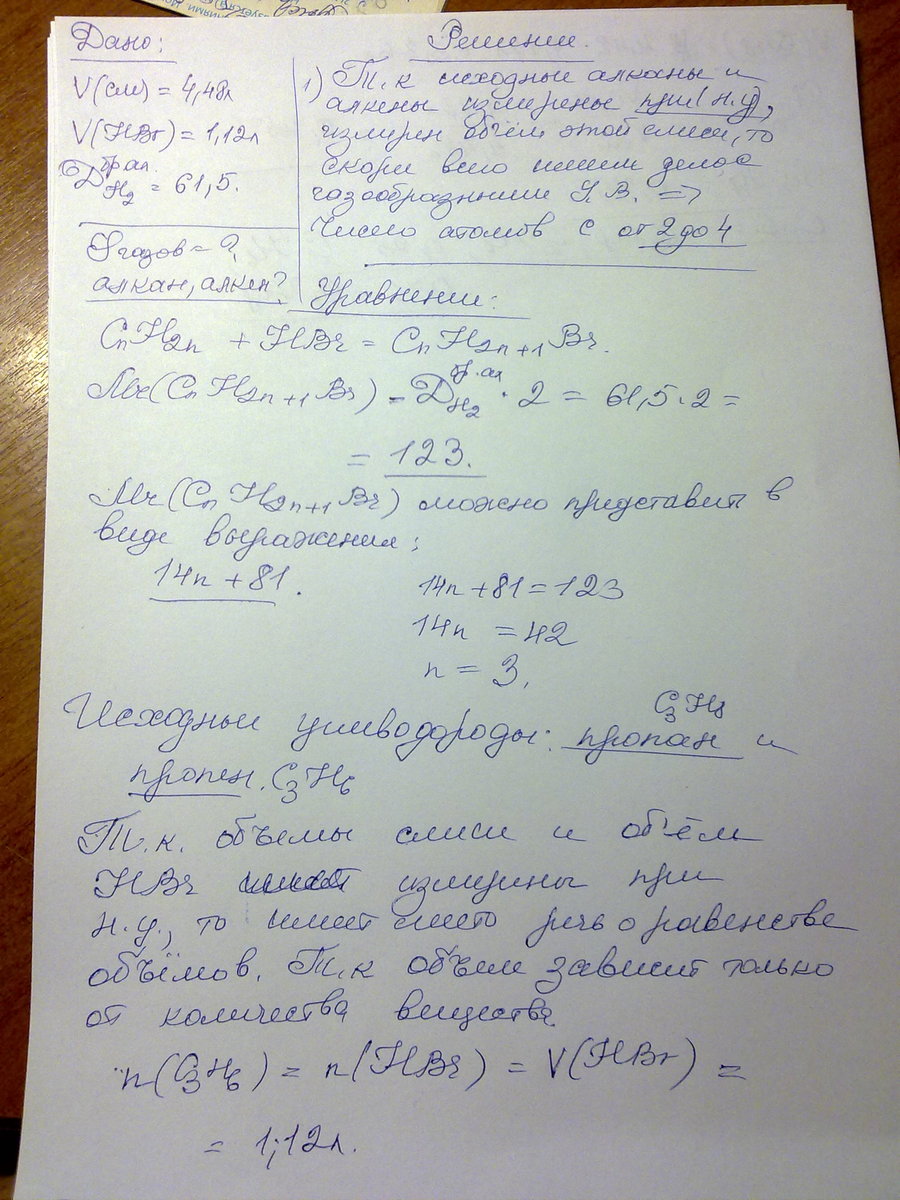 Дано:
V(см) = 4,48л
V(HBr) = 1,12л
D бр.ал. H2 = 61,5.
газов = ?
алкан, алкен?
Решение.
1) Т.к исходные алканы и
алкены измерены при(н.у),
измерен объём этой смеси, то
скорее всего имеем дело с
газообразными У.В. =>
Число атомов С от 2 до 4
Уравнение:
CnH2n + HBr = CnH2n+1Br.
Mr(CnH2n+1Br) = D бр.ал H2 · 2 = 61,5·2 =
= 123.
Mr(CnH2n+1Br) можно представить в
виде выражения:
14n + 81.
14n + 81 = 123
14n = 42
n = 3.
C3H8
Исходные углеводороды: пропан и
пропен. C3H6
Т.к. объемы смеси и объём
HBr измерены при
н.у., то имеет место речь о равенстве
объёмов. Т.к объем зависит только
от количества вещества
n(C3H6) = n(HBr) = V(HBr) =
= 1,12л.